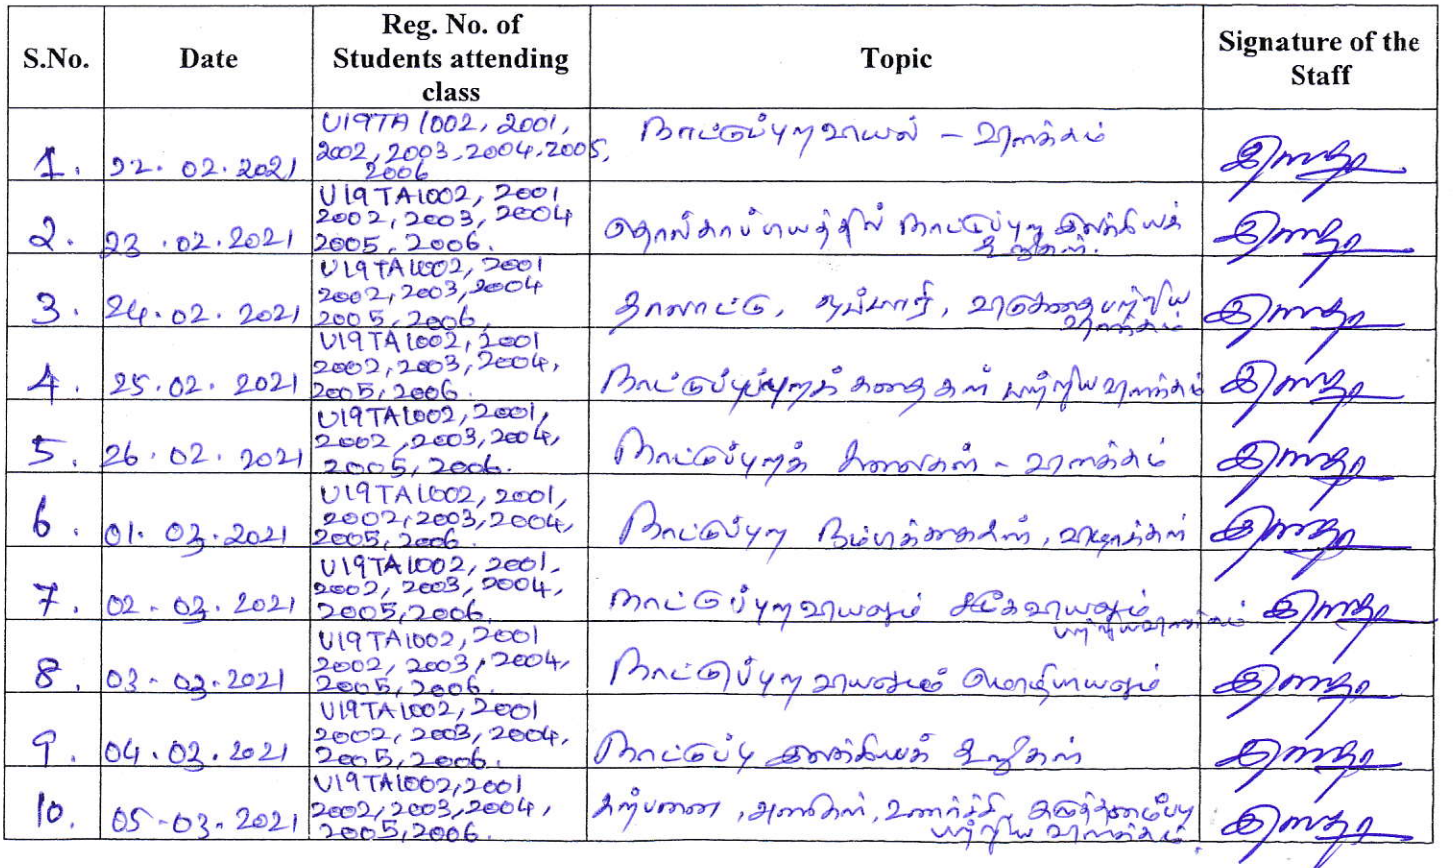 S.No.
Date
Reg. No. of
Students attending
class
Topic
Signature of the
Staff
1. 22.02.2021
U19TA1002, 2001,
2002, 2003, 2004, 2005,
2006
நாட்டுப்புறவியல் – விளக்கம்
2. 23.02.2021
U19TA1002, 2001
2002, 2003, 2004
2005, 2006.
தொல்காப்பியத்தில் நாட்டுப்புற இலக்கியக்
கூறுகள்.
3. 24.02.2021
U19TA1002, 2001
2002, 2003, 2004
2005, 2006.
தாலாட்டு, ஒப்பாரி, விடுகதை பற்றிய
விளக்கம்
4. 25.02.2021
U19TA1002, 2001
2002, 2003, 2004,
2005, 2006.
நாட்டுப்புறக் கதைகள் பற்றிய விளக்கம்
5. 26.02.2021
U19TA1002, 2001,
2002, 2003, 2004,
2005, 2006.
நாட்டுப்புறக் கலைகள் – விளக்கம்
6. 01.03.2021
U19TA1002, 2001,
2002, 2003, 2004,
2005, 2006.
நாட்டுப்புற நம்பிக்கைகள், விழாக்கள்
7. 02-03.2021
U19TA1002, 2001.
2002, 2003, 2004,
2005, 2006.
நாட்டுப்புறவியலும் சமூகவியலும்
பற்றிய விளக்கம்
8. 03-03-2021
U19TA1002, 2001
2002, 2003, 2004,
2005, 2006.
நாட்டுப்புறவியலும் மொழியியலும்
9. 04.03.2021
U19TA1002, 2001
2002, 2003, 2004,
2005, 2006.
நாட்டுப்பு இலக்கியக் கூறுகள்
10. 05-03-2021
U19TA1002, 2001
2002, 2003, 2004,
2005, 2006.
கற்பனை, அணிகள், உணர்ச்சி, கருத்தமைப்பு
பற்றிய விளக்கம்.